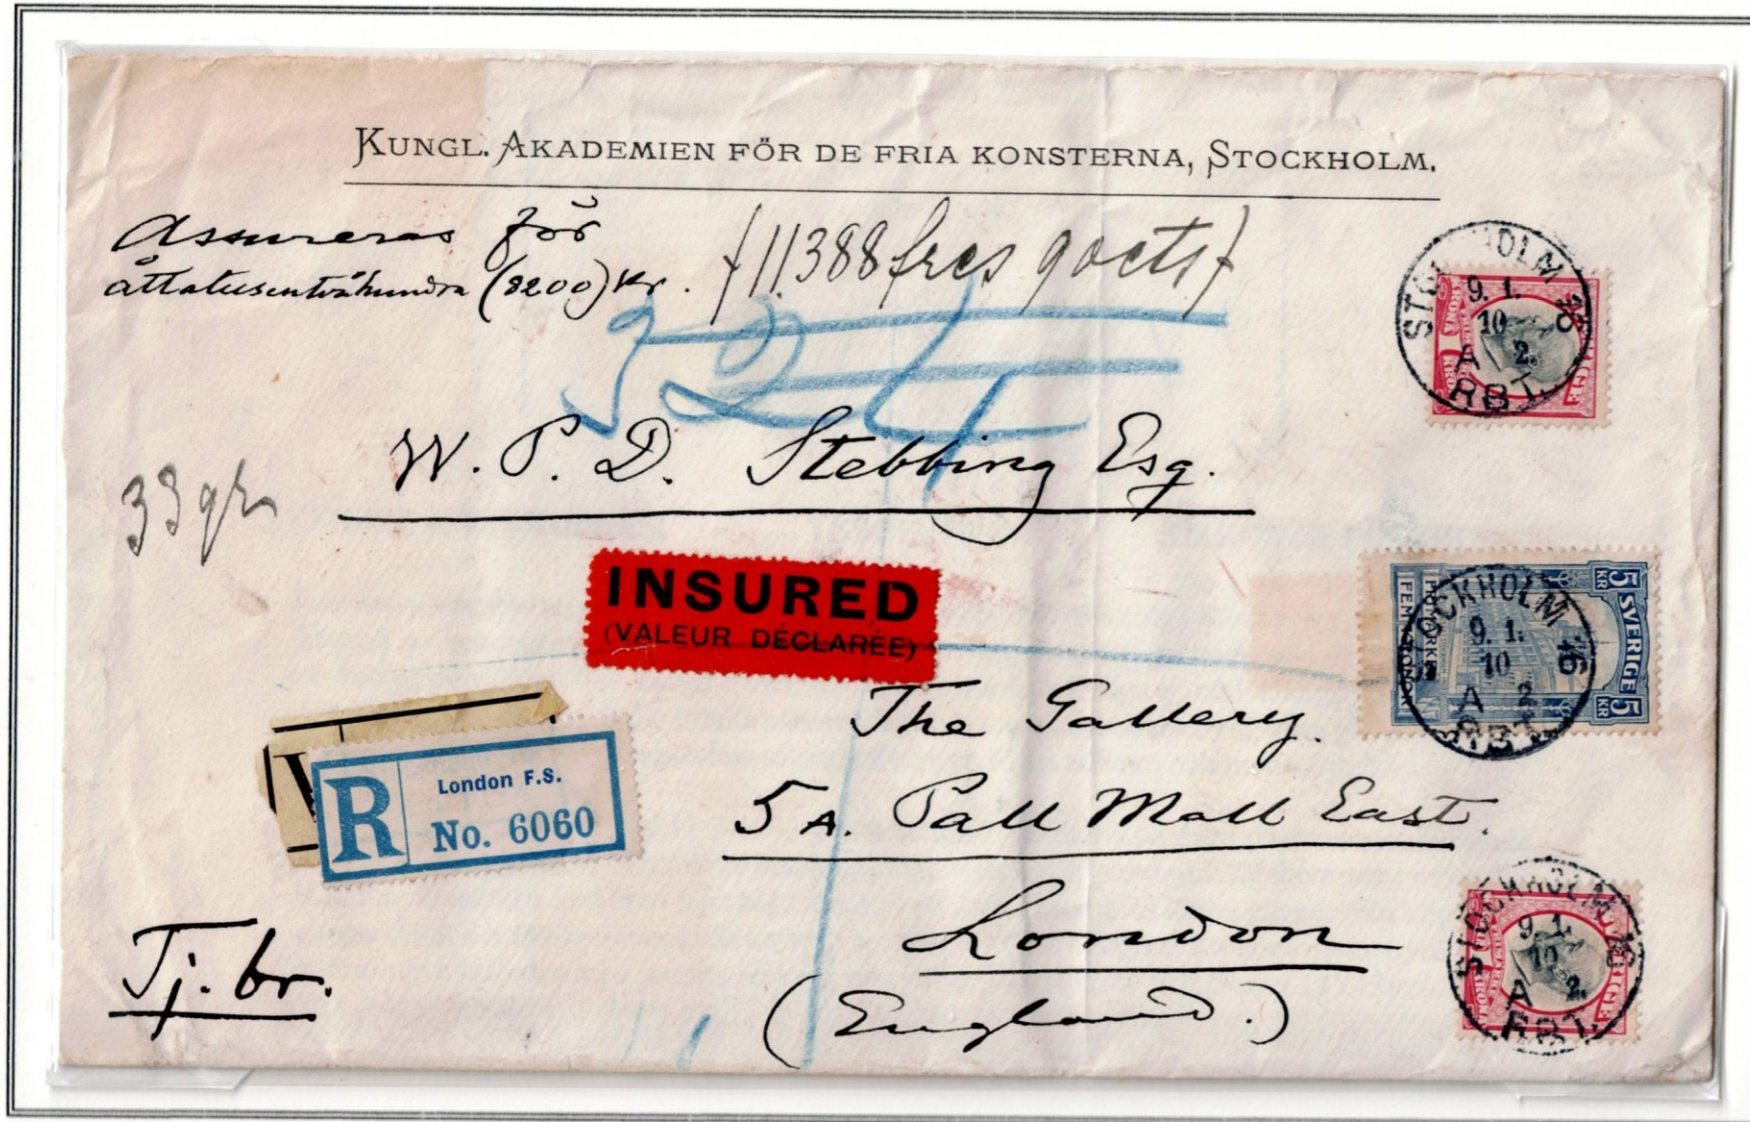 KUNGL. AKADEMIEN FÖR DE FRIA KONSTERNA, STOCKHOLM.
Assureras för
åttatusentvåhundra (8200) Kr. (11.388 frcs 90 cts)
324
STOCKHOLM 16
9. 1.
10
A 2.
RBT.
W. P. D. Stebbing Esq.
33 gr
INSURED
(VALEUR DÉCLARÉE)
5 KR SVERIGE 5 KR
FEM KRONOR
STOCKHOLM 16
9. 1.
10
A 2
RBT.
The Gallery.
R London F.S.
No. 6060
V
5A. Pall Mall East.
London
(England.)
Tj. br.
STOCKHOLM 16
9. 1.
10
A 2.
RBT.